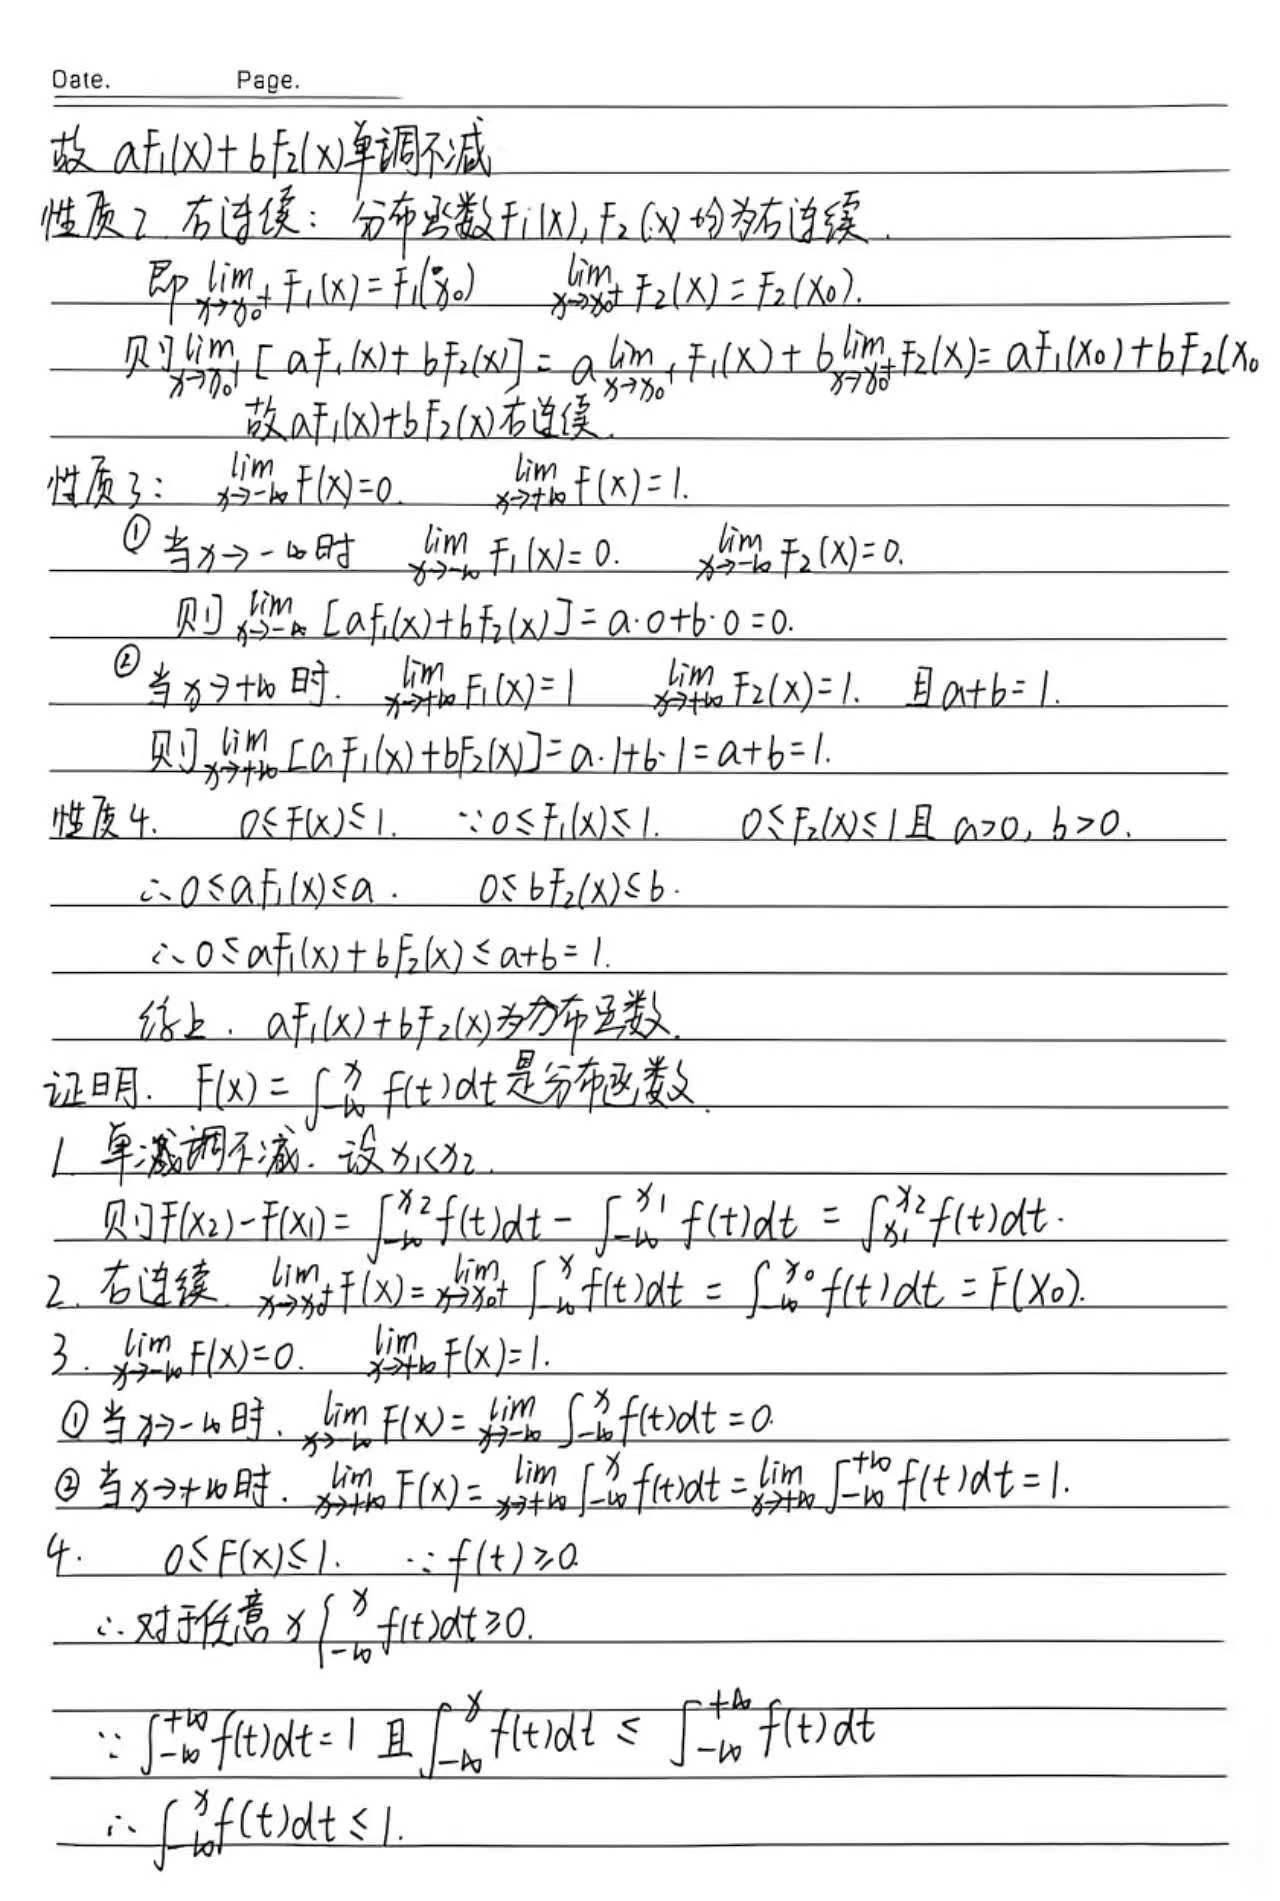 Date. Page.
故 aF₁(x)+bF₂(x)单调不减
性质2 右连续: 分布函数F₁(x), F₂(x)均为右连续.
即 lim_{x→x₀⁺} F₁(x)=F₁(x₀) lim_{x→x₀⁺} F₂(x)=F₂(x₀).
则 lim_{x→x₀⁺} [aF₁(x)+bF₂(x)] = a lim_{x→x₀⁺} F₁(x)+b lim_{x→x₀⁺} F₂(x)= aF₁(x₀)+bF₂(x₀
故aF₁(x)+bF₂(x)右连续.
性质3: lim_{x→-∞} F(x)=0. lim_{x→+∞} F(x)=1.
① 当x→-∞时 lim_{x→-∞} F₁(x)=0. lim_{x→-∞} F₂(x)=0.
则 lim_{x→-∞} [aF₁(x)+bF₂(x)]=a·0+b·0=0.
② 当x→+∞时. lim_{x→+∞} F₁(x)=1 lim_{x→+∞} F₂(x)=1. 且a+b=1.
则 lim_{x→+∞} [aF₁(x)+bF₂(x)]=a·1+b·1=a+b=1.
性质4. 0≤F(x)≤1. ∵0≤F₁(x)≤1. 0≤F₂(x)≤1且 a>0, b>0.
∴0≤aF₁(x)≤a. 0≤bF₂(x)≤b.
∴0≤aF₁(x)+bF₂(x)≤a+b=1.
综上. aF₁(x)+bF₂(x)为分布函数.
证明. F(x)=∫_{-∞}^{x} f(t)dt是分布函数.
1. 单调不减. 设x₁<x₂.
则F(x₂)-F(x₁)=∫_{-∞}^{x₂} f(t)dt-∫_{-∞}^{x₁} f(t)dt=∫_{x₁}^{x₂} f(t)dt.
2. 右连续. lim_{x→x₀⁺} F(x)=lim_{x→x₀⁺} ∫_{-∞}^{x} f(t)dt=∫_{-∞}^{x₀} f(t)dt=F(x₀).
3. lim_{x→-∞} F(x)=0. lim_{x→+∞} F(x)=1.
①当x→-∞时. lim_{x→-∞} F(x)=lim_{x→-∞} ∫_{-∞}^{x} f(t)dt=0.
②当x→+∞时. lim_{x→+∞} F(x)=lim_{x→+∞} ∫_{-∞}^{x} f(t)dt=lim_{x→+∞} ∫_{-∞}^{+∞} f(t)dt=1.
4. 0≤F(x)≤1. ∵f(t)≥0.
∴对于任意x ∫_{-∞}^{x} f(t)dt≥0.
∵∫_{-∞}^{+∞} f(t)dt=1 且 ∫_{-∞}^{x} f(t)dt≤∫_{-∞}^{+∞} f(t)dt
∴∫_{-∞}^{x} f(t)dt≤1.